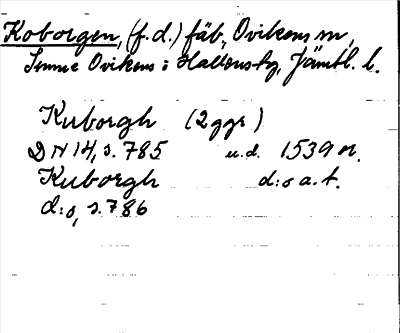 Koborgen, (f.d.) fäb., Ovikens sn,
Sunne Ovikens o Hallens tg, Jämtl. l.
Kuborgh (2 ggr)
DN 14, s. 785 u.d. 1539 n.
Kuborgh d:o a.t.
d:o, s. 786